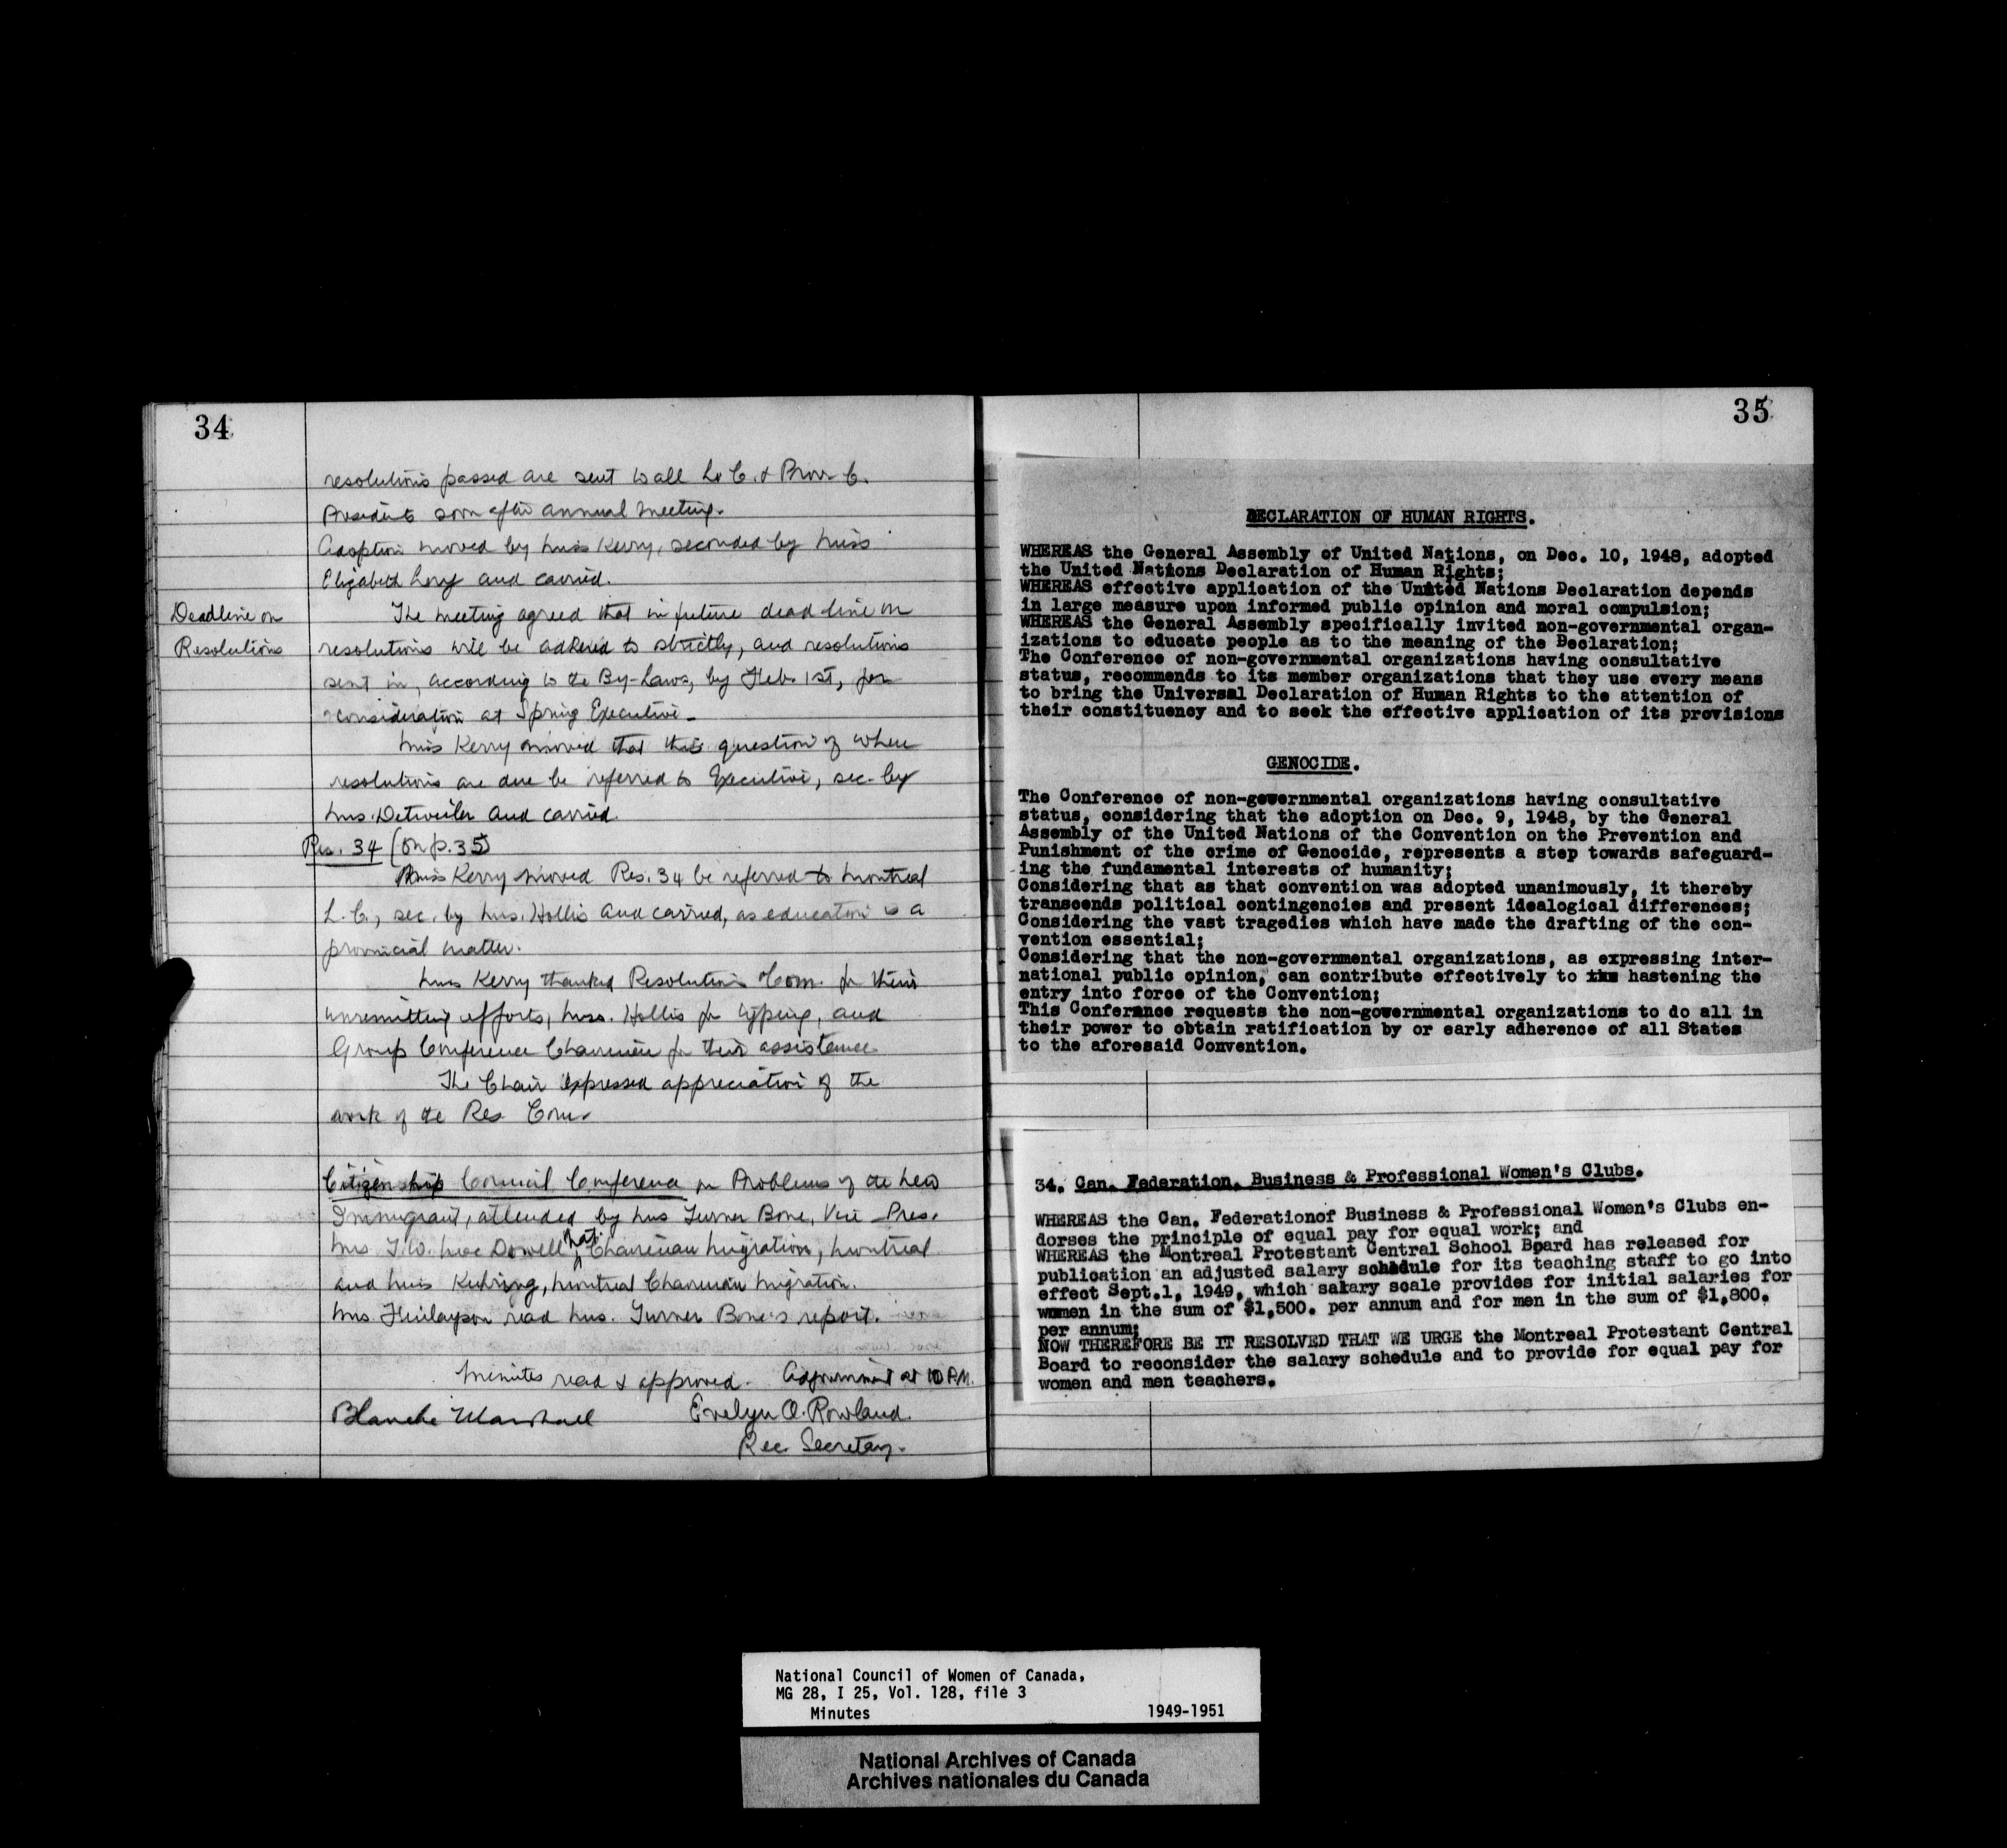 34
resolutions passed are sent to all L. C. & Prov. C.
Presidents soon after annual meeting.
Adoption moved by Miss Kerry, seconded by Miss
Elizabeth Long and carried.
Deadline on
Resolutions
The meeting agreed that in future dead line on
resolutions will be adhered to strictly, and resolutions
sent in, according to the By-Laws, by Feb. 1st, for
consideration at Spring Executive.
Miss Kerry moved that this question of when
resolutions are due be referred to Executive, sec. by
Mrs. Detweiler and carried.
Res. 34 (on p. 35)
Miss Kerry moved Res. 34 be referred to Montreal
L.C., sec. by Mrs. Hollis and carried, as education is a
provincial matter.
Miss Kerry thanked Resolutions Com. for their
unremitting efforts, Miss. Hollis for typing, and
Group Conference Chairmen for their assistance
The Chair expressed appreciation of the
work of the Res. Com.
Citizenship Council Conference on Problems of the New
Immigrant, attended by Mrs Turner Bone, Vice-Pres.
Mrs. T.W. Mac Dowell Nat. Chairman Migration, Montreal
and Miss Kuhring, Montreal Chairman Migration.
Mrs. Finlayson read Mrs. Turner Bone's report.
Minutes read & approved. Adjournment at 10 P.M.
Blanche Marshall Evelyn O. Rowland.
Rec. Secretary.
35
DECLARATION OF HUMAN RIGHTS.
WHEREAS the General Assembly of United Nations, on Dec. 10, 1948, adopted
the United Nations Declaration of Human Rights;
WHEREAS effective application of the United Nations Declaration depends
in large measure upon informed public opinion and moral compulsion;
WHEREAS the General Assembly specifically invited non-governmental organ-
izations to educate people as to the meaning of the Declaration;
The Conference of non-governmental organizations having consultative
status, recommends to its member organizations that they use every means
to bring the Universal Declaration of Human Rights to the attention of
their constituency and to seek the effective application of its provisions
GENOCIDE.
The Conference of non-governmental organizations having consultative
status, considering that the adoption on Dec. 9, 1948, by the General
Assembly of the United Nations of the Convention on the Prevention and
Punishment of the crime of Genocide, represents a step towards safeguard-
ing the fundamental interests of humanity;
Considering that as that convention was adopted unanimously, it thereby
transcends political contingencies and present idealogical differences;
Considering the vast tragedies which have made the drafting of the con-
vention essential;
Considering that the non-governmental organizations, as expressing inter-
national public opinion, can contribute effectively to hastening the
entry into force of the Convention;
This Conference requests the non-governmental organizations to do all in
their power to obtain ratification by or early adherence of all States
to the aforesaid Convention.
34. Can. Federation. Business & Professional Women's Clubs.
WHEREAS the Can. Federationof Business & Professional Women's Clubs en-
dorses the principle of equal pay for equal work; and
WHEREAS the Montreal Protestant Central School Board has released for
publication an adjusted salary schedule for its teaching staff to go into
effect Sept.1, 1949, which salary scale provides for initial salaries for
women in the sum of $1,500. per annum and for men in the sum of $1,800.
per annum;
NOW THEREFORE BE IT RESOLVED THAT WE URGE the Montreal Protestant Central
Board to reconsider the salary schedule and to provide for equal pay for
women and men teachers.
National Council of Women of Canada,
MG 28, I 25, Vol. 128, file 3
Minutes 1949-1951
National Archives of Canada
Archives nationales du Canada